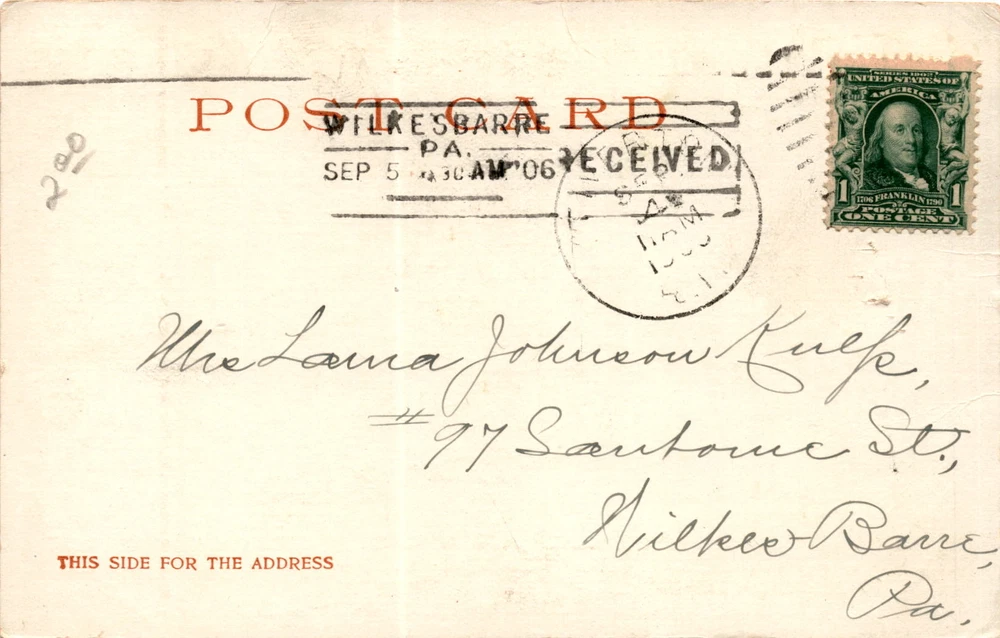 POST CARD
WILKESBARRE
PA.
SEP 5 AM '06
RECEIVED
SEP
4
11 AM
SERIES 1902
UNITED STATES OF
AMERICA
1 1
1706 FRANKLIN 1790
POSTAGE
ONE CENT
200
Mrs Laura Johnson Kulp,
# 97 Santome St.,
Wilkes Barre,
Pa.
THIS SIDE FOR THE ADDRESS